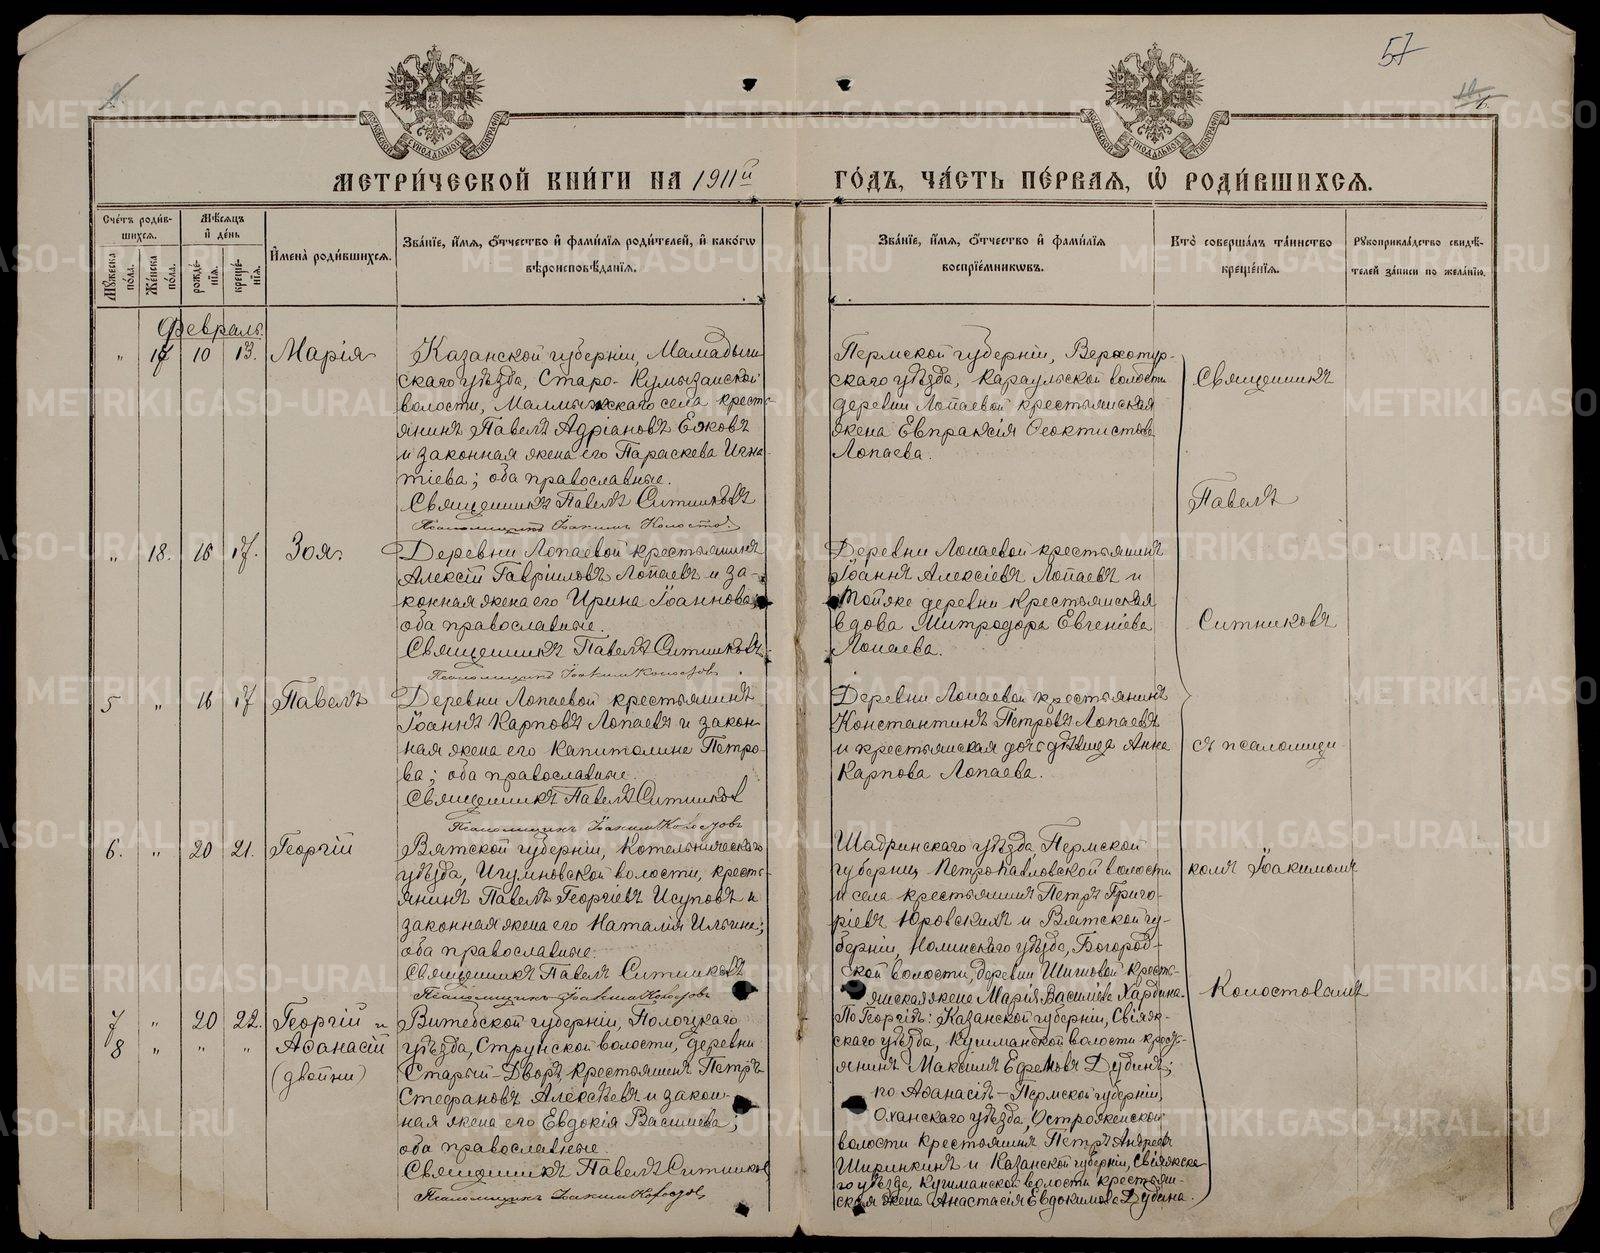 57
МЕТРИ́ЧЕСКОЙ КНИ́ГИ НА 1911й ГО́ДЪ, ЧА́СТЬ ПЕ́РВАЯ, Ѡ РОДИ́ВШИХСЯ.
Сче́тъ роди́в-
шихся.
Му́жеска по́ла.
Же́нска по́ла.
Мѣ́сяцъ
и де́нь
рожде́-
нія.
креще́-
нія.
Имена̀ роди́вшихся.
Зва́ніе, и́мя, о́тчество и фами́лія роди́телей, и како́гѡ
вѣроисповѣ́данія.
Зва́ніе, и́мя, о́тчество и фами́лія
воспріе́мникѡвъ.
Кто̀ соверша́лъ та́инство
креще́нія.
Рукоприкла́дство свидѣ́-
телей за́писи по жела́нію.
Февраль.
" 17 10 13. Марія
Казанской губерніи, Мамадыш-
скаго уѣзда, Старо-Кумызанской
волости, Малмыжскаго села кресть-
янинъ Павелъ Адріановъ Ежовъ
и законная жена его Параскева Игна-
тіева; оба православные.
Священникъ Павелъ Ситниковъ
Псаломщикъ Іоакимъ Колосто
Пермской губерніи, Верхотур-
скаго уѣзда, Караульской волости
деревни Лопаевой крестьянская
жена Евпраксія Ѳеоктистова
Лопаева.
" 18. 16 17. Зоя.
Деревни Лопаевой крестьянинъ
Алексій Гавріиловъ Лопаевъ и за-
конная жена его Ирина Іоаннова
оба православные.
Священникъ Павелъ Ситниковъ
Псаломщикъ Іоакимъ Колостовъ
Деревни Лопаевой крестьянинъ
Іоаннъ Алексіевъ Лопаевъ и
Тойже деревни крестьянская
вдова Митродора Евгеніева
Лопаева.
5 " 16 17 Павелъ
Деревни Лопаевой крестьянинъ
Іоаннъ Карповъ Лопаевъ и закон-
ная жена его Капитолина Петро-
ва; оба православные.
Священникъ Павелъ Ситниковъ
Псаломщикъ Іоакимъ Колостовъ
Деревни Лопаевой крестьянинъ
Константинъ Петровъ Лопаевъ
и крестьянская дочь дѣвица Анна
Карпова Лопаева.
6. " 20 21. Георгій
Вятской губерніи, Котельническаго
уѣзда, Игумновской волости, кресть-
янинъ Павелъ Георгіевъ Исуповъ и
законная жена его Наталія Ильина;
оба православные.
Священникъ Павелъ Ситниковъ
Псаломщикъ Іоакимъ Колостовъ
Шадринскаго уѣзда Пермской
губерніи Петропавловской волости
и села крестьянинъ Петръ Григо-
ріевъ Юровскихъ и Вятской гу-
берніи, Нолинскаго уѣзда, Богород-
ской волости, деревни Шишовой кресть-
янская жена Марія Василіева Хардина.
7 " 20 22. Георгій и
8 " " " Аѳанасій
(двойни)
Витебской губерніи, Полоцкаго
уѣзда, Струнской волости, деревни
Старый-Дворъ крестьянинъ Петръ
Стефановъ Алексѣевъ и закон-
ная жена его Евдокія Василіева;
оба православные.
Священникъ Павелъ Ситниковъ
Псаломщикъ Іоакимъ Колостовъ
По Георгіѣ: Казанской губерніи, Свіяж-
скаго уѣзда, Кушманской волости кресть-
янинъ Максимъ Ефремовъ Дубинъ;
по Аѳанасіѣ - Пермской губерніи,
Оханскаго уѣзда, Острожской
волости крестьянинъ Петръ Андреевъ
Ширинкинъ и Казанской губерніи, Свіяжска-
го уѣзда, Кушманской волости крестьян-
ская жена Анастасія Евдокимова Дубина.
Священникъ
Павелъ
Ситниковъ
съ псаломщи-
комъ Іоакимомъ
Колостовымъ
METRIKI.GASO-URAL.RU